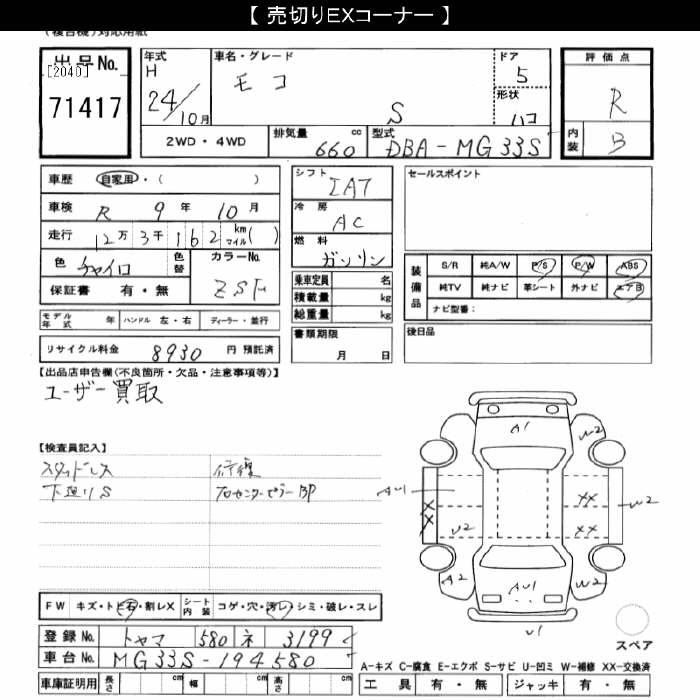 【 売切りEXコーナー 】
(複合機)対応用紙
出品No.
[2040]
71417
年式 H 24/10月
車名・グレード モコ S
ドア 5
形状 ハコ
評価点 R
内装 B
2WD・4WD
排気量 660 cc
型式 DBA-MG33S
車歴 自家用・( )
車検 R 9年 10月
走行 12万 3千 162 km マイル( )
色 チャイロ
色替
カラーNo.
保証書 有・無
シフト IAT
冷房 AC
燃料 ガソリン
乗車定員 名
積載量 kg
総重量 kg
セールスポイント
装備品
S/R 純A/W P/S P/W ABS
純TV 純ナビ 革シート 外ナビ エアB
ナビ型番:
モデル年式 年 ハンドル 左・右 ディーラー・並行
書類期限 月 日
後日品
リサイクル料金 8930 円 預託済
【出品店申告欄(不良箇所・欠品・注意事項等)】
ユーザー買取
【検査員記入】
スタッドレス
下廻りS
修復
センターピラーBP
A1
W2
AU1
XX
W2
XX
U2
XX
A2
AU1
W2
U1
スペア
FW キズ・トビ石・割レX
シート内装 コゲ・穴・汚レ・シミ・破レ・スレ
登録No. トヤマ 580 ネ 3199
車台No. MG33S-194580
車庫証明用 長さ cm 幅 cm 高さ cm
A-キズ C-腐食 E-エクボ S-サビ U-凹ミ W-補修 XX-交換済
工具 有・無 ジャッキ 有・無